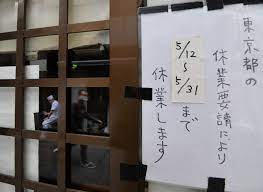 東京都の
休業要請により
5/12
~
5/31
まで
休業します